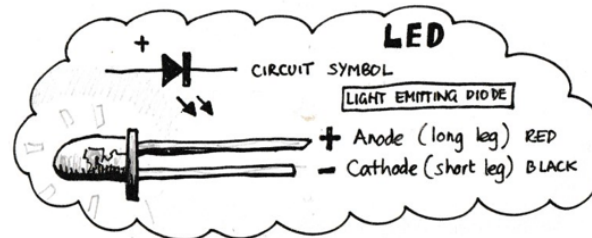 LED
+
CIRCUIT SYMBOL
LIGHT EMITTING DIODE
+ Anode (long leg) RED
- Cathode (short leg) BLACK